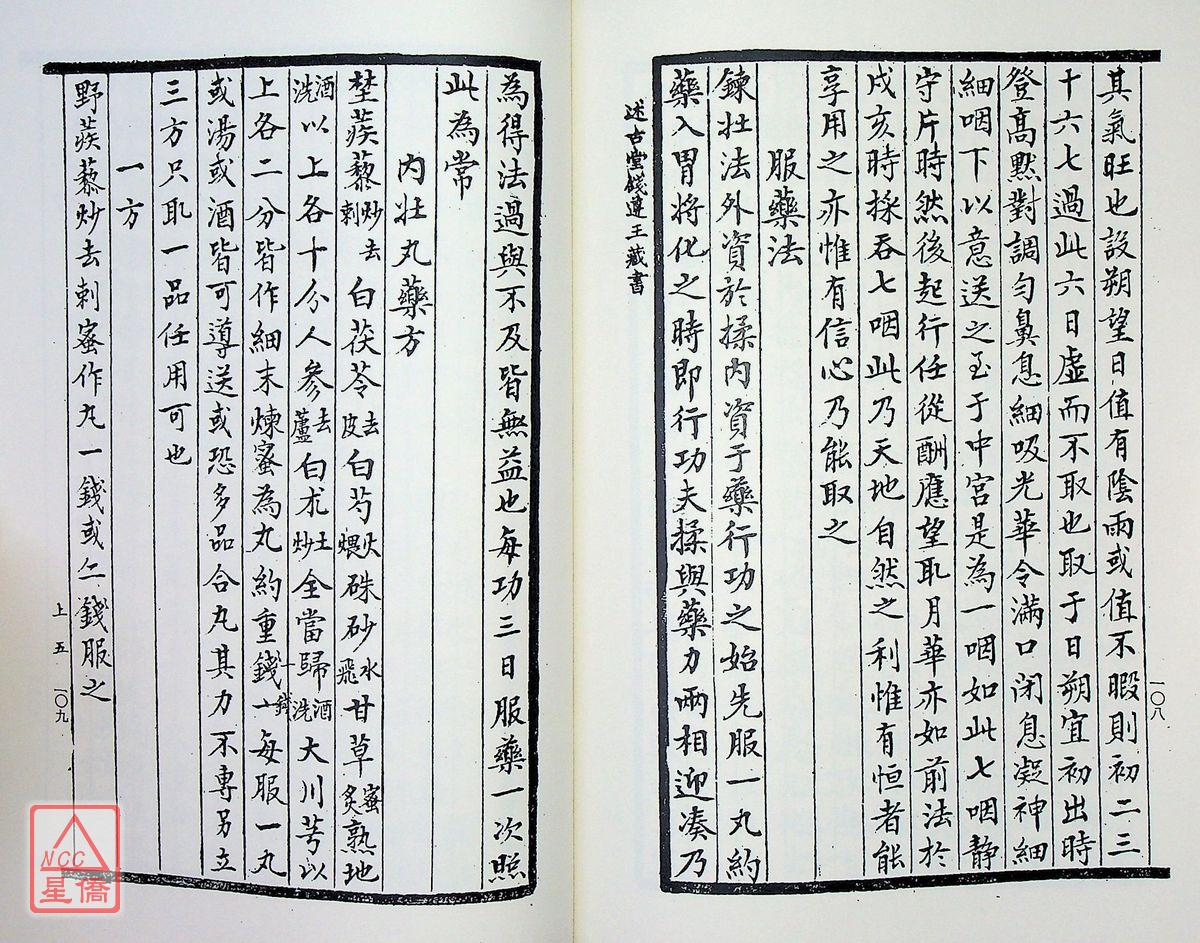 其氣旺也設朔望日值有陰雨或值不暇則初二三
十六七過此六日虛而不取也取于日朔宜初出時
登高默對調勻鼻息細吸光華令滿口閉息凝神細
細咽下以意送之至于中宮是為一咽如此七咽靜
守片時然後起行任從酬應望取月華亦如前法於
戍亥時採吞七咽此乃天地自然之利惟有恒者能
享用之亦惟有信心乃能取之
服藥法
鍊壯法外資於揉內資于藥行功之始先服一丸約
藥入胃將化之時即行功夫揉與藥力兩相迎凑乃
述古堂錢遵王藏書
一〇八
為得法過與不及皆無益也每功三日服藥一次照
此為常
內壯丸藥方
埜蒺藜炒去刺白茯苓去皮白芍火煨硃砂水飛甘草蜜炙熟地
酒洗以上各十分人參去蘆白朮土炒全當歸酒洗大川芎以
上各二分皆作細末煉蜜為丸約重錢每服一丸
或湯或酒皆可導送或恐多品合丸其力不專另立
三方只取一品任用可也
一方
野蒺藜炒去刺蜜作丸一錢或二錢服之
上五
一〇九
NCC
星僑